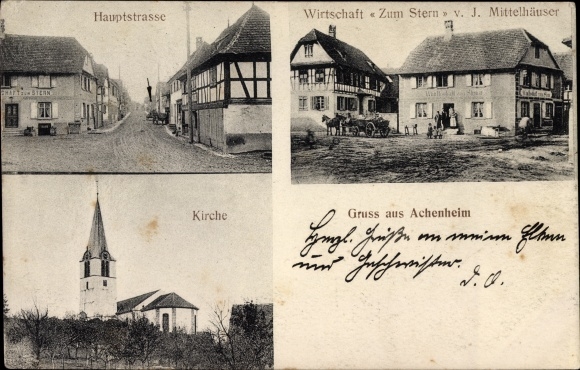 Hauptstrasse
Wirtschaft « Zum Stern » v. J. Mittelhäuser
Kirche
Gruss aus Achenheim
Herzl. Grüße an meine Eltern
und Geschwister.